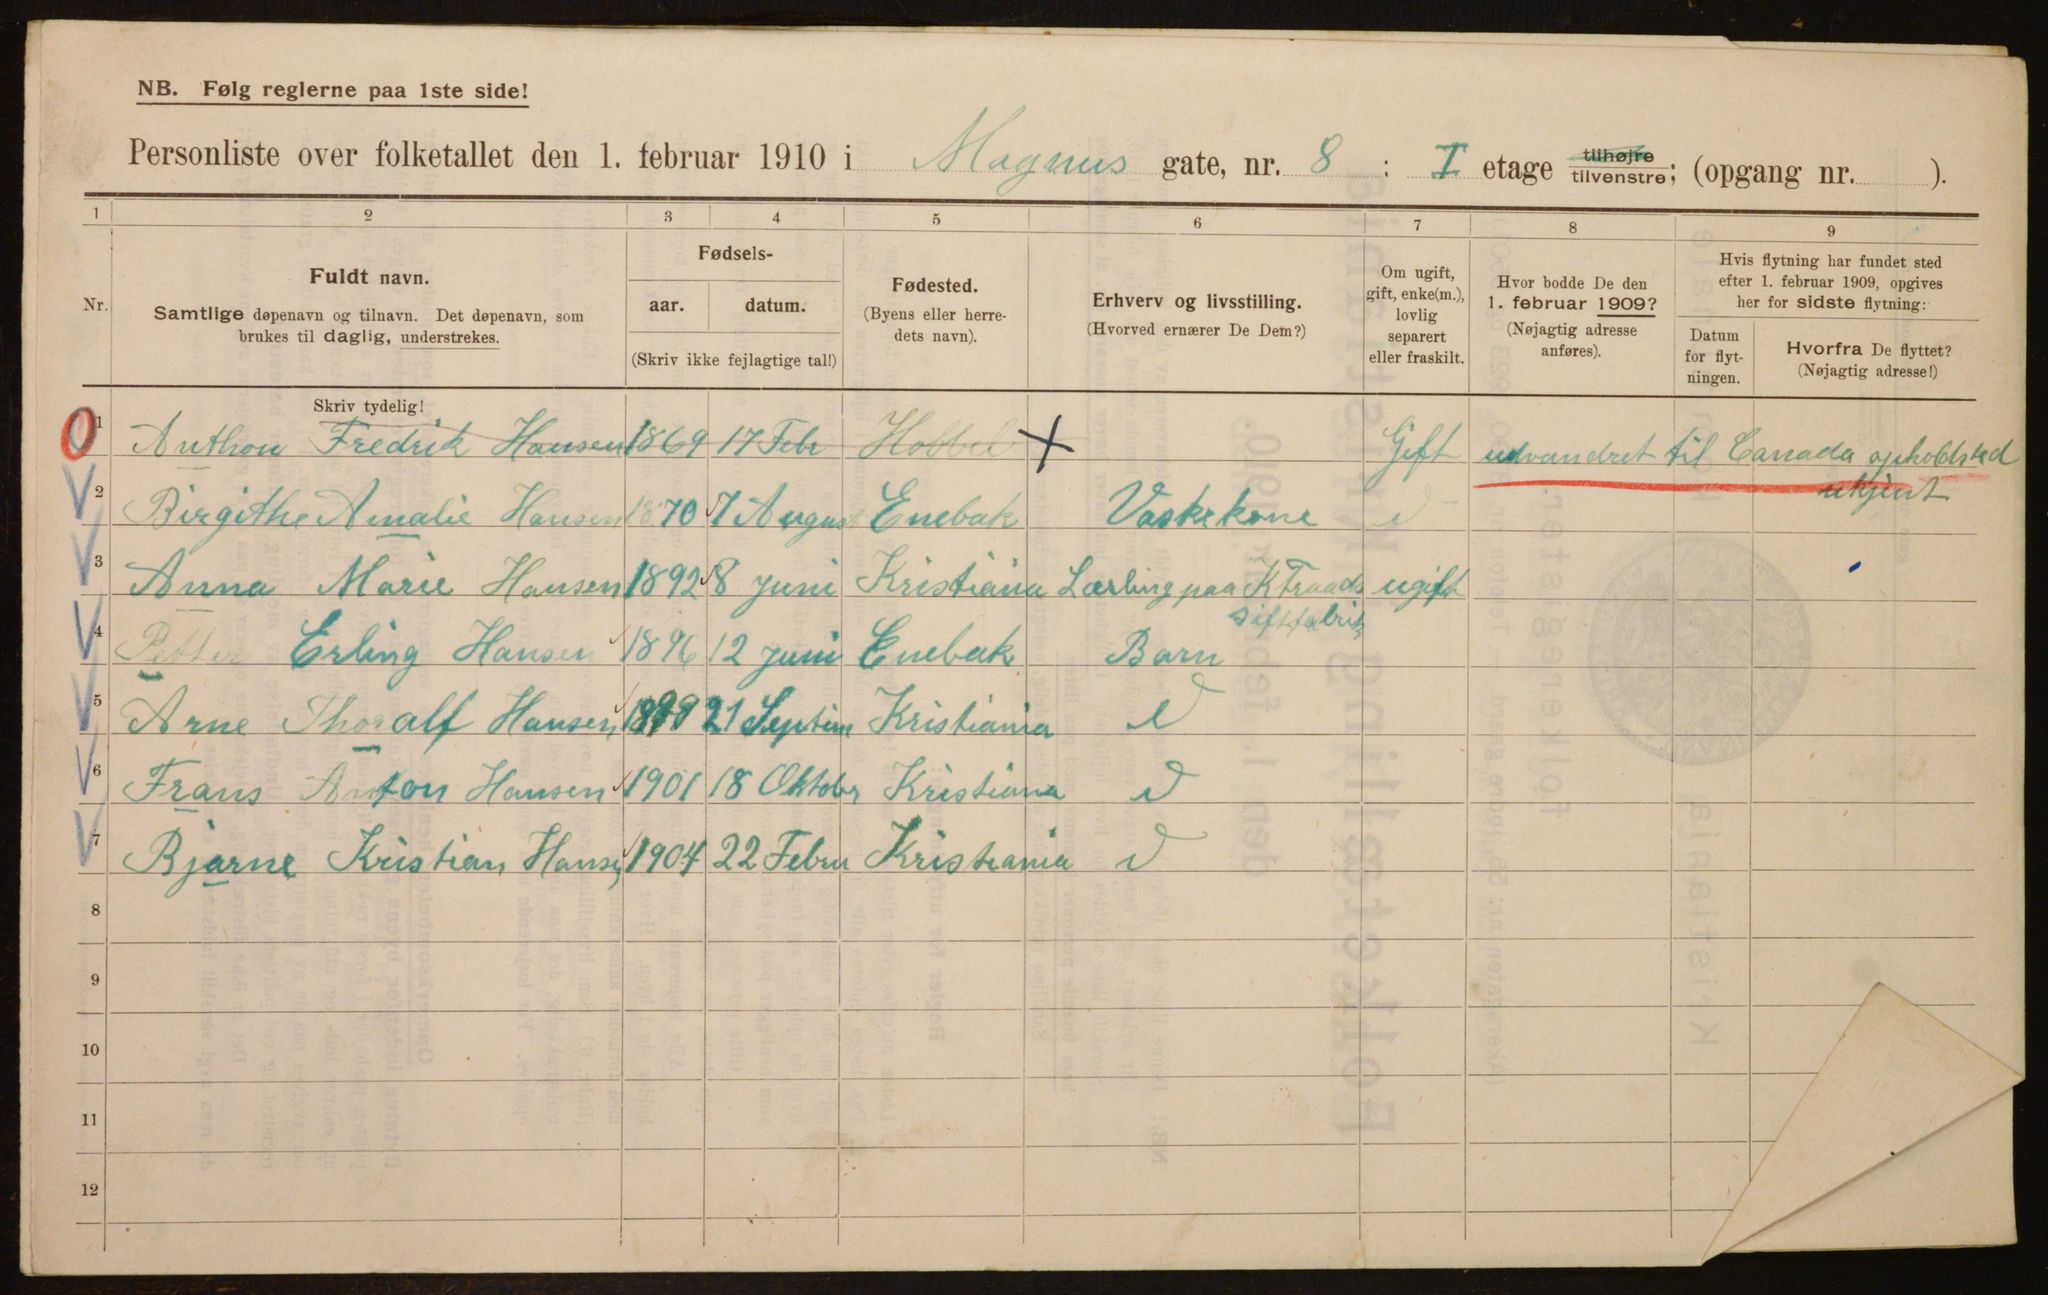 NB. Følg reglerne paa 1ste side!
Personliste over folketallet den 1. februar 1910 i Magnus gate, nr. 8 : I etage tilhøjre tilvenstre; (opgang nr. ).
1 2 3 4 5 6 7 8 9
Nr.
Fuldt navn.
Samtlige døpenavn og tilnavn. Det døpenavn, som
brukes til daglig, understrekes.
Fødsels-
aar. datum.
(Skriv ikke fejlagtige tal!)
Fødested.
(Byens eller herre-
dets navn).
Erhverv og livsstilling.
(Hvorved ernærer De Dem?)
Om ugift,
gift, enke(m.),
lovlig
separert
eller fraskilt.
Hvor bodde De den
1. februar 1909?
(Nøjagtig adresse
anføres).
Hvis flytning har fundet sted
efter 1. februar 1909, opgives
her for sidste flytning:
Datum
for flyt-
ningen.
Hvorfra De flyttet?
(Nøjagtig adresse!)
Skriv tydelig!
1 Anthon Fredrik Hansen 1869 17 Febr Hobbel Gift udvandret til Canada opholdsted
ukjent
2 Birgithe Amalie Hansen 1870 7 August Enebak Vaskekone
3 Anna Marie Hansen 1892 8 juni Kristiania Lærling paa K Traads ugift
4 Petter Erling Hansen 1896 12 juni Enebak Barn
5 Arne Thoralf Hansen 1899 21 Septem Kristiania
6 Frans Anton Hansen 1901 18 Oktober Kristiana
7 Bjarne Kristian Hansen 1904 22 Febru Kristiania
8
9
10
11
12